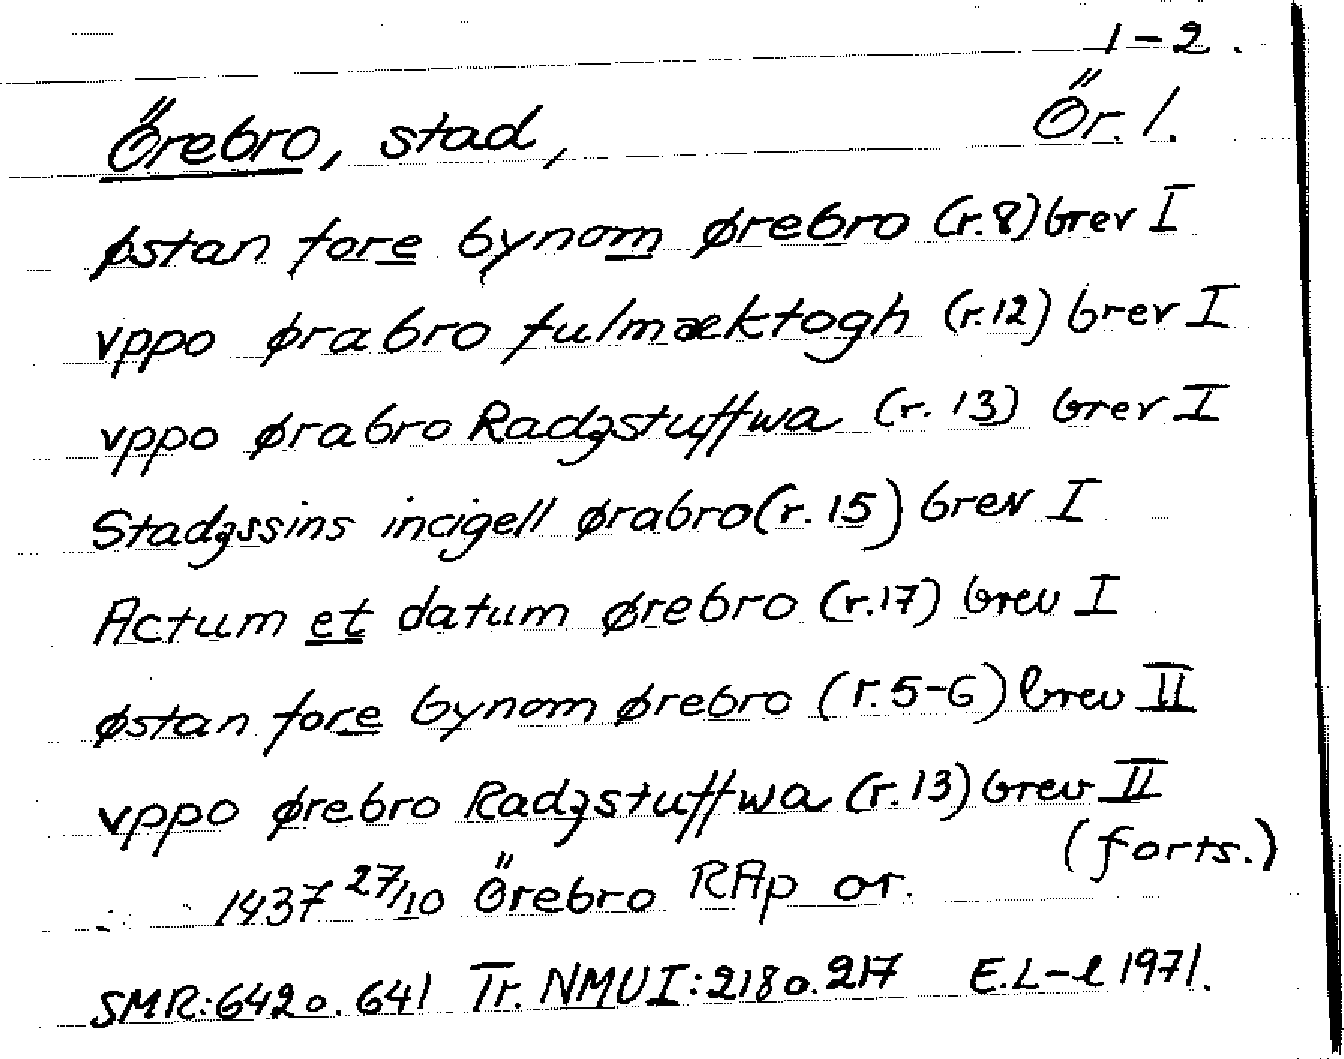 1-2.
Örebro, stad, Ör. 1.
østan fore bynom ørebro (r.8) brev I
vppo ørabro fulmæktogh (r.12) brev I
vppo ørabro Radzstuffwa (r. 13) brev I
Stadzssins incigell ørabro (r. 15) brev I
Actum et datum ørebro (r.17) brev I
østan fore bynom ørebro (r. 5-6) brev II
vppo ørebro Radzstuffwa (r. 13) brev II
(forts.)
1437 27/10 Örebro RAp or.
SMR: 642 o. 641 Tr. NMU I: 218 o. 217 E.L-l 1971.